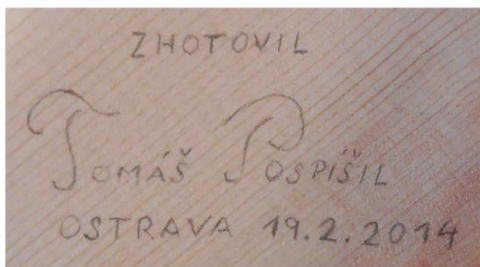 ZHOTOVIL
TOMÁŠ POSPÍŠIL
OSTRAVA 19.2.2014